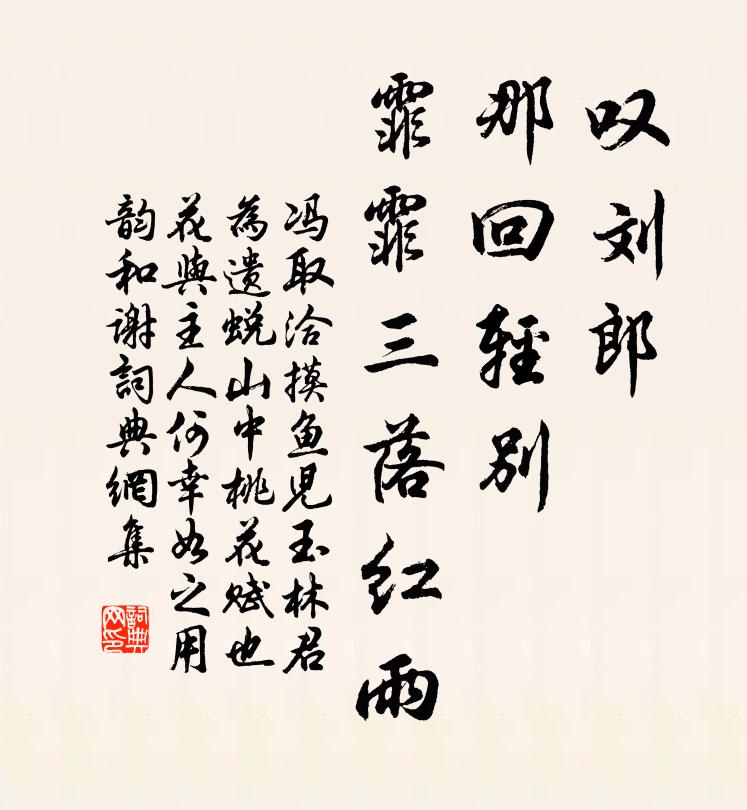 叹刘郎
那回轻别
霏霏三落红雨
冯取洽摸鱼児玉林君
為遗蜕山中桃花赋也
花與主人何幸如之用
韵和谢詞典網集
詞典网印